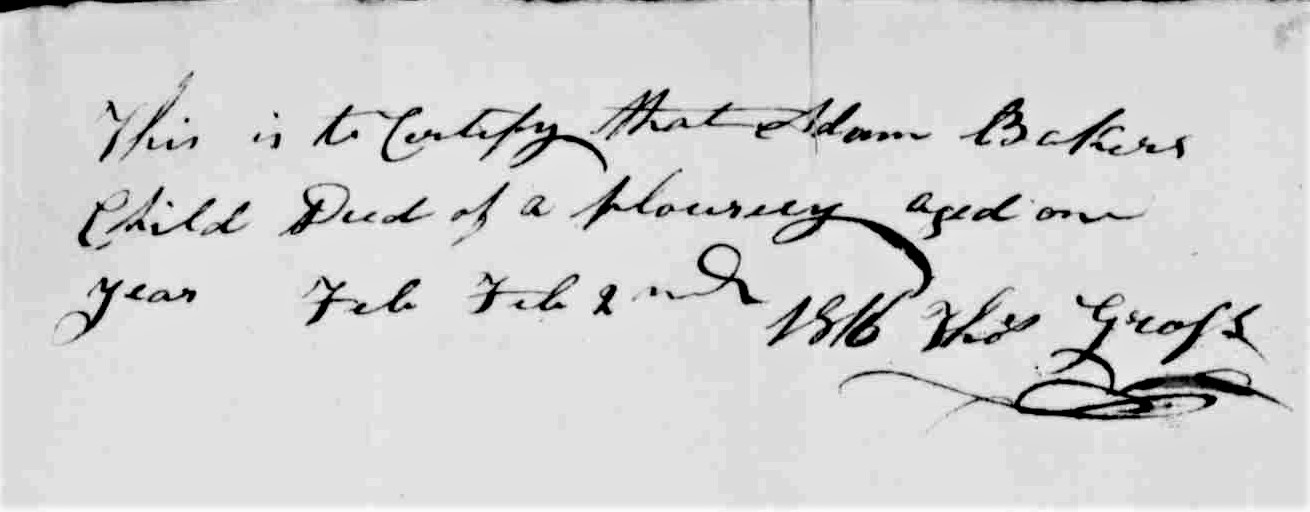 This is to Certify that Adam Bakers
Child Died of a plouresey aged one
year Feb Feb 2nd 1816 Thos Gross